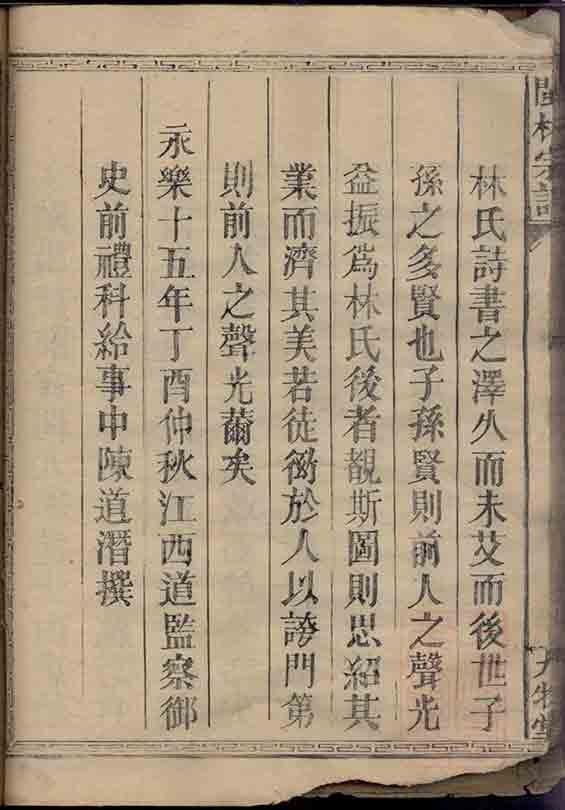 閩林宗譜
林氏詩書之澤久而未艾而後世子
孫之多賢也子孫賢則前人之聲光
益振爲林氏後者覩斯圖則思紹其
業而濟其美若徒衒於人以誇門第
則前人之聲光薾矣
永樂十五年丁酉仲秋江西道監察御
史前禮科給事中陳道潛撰